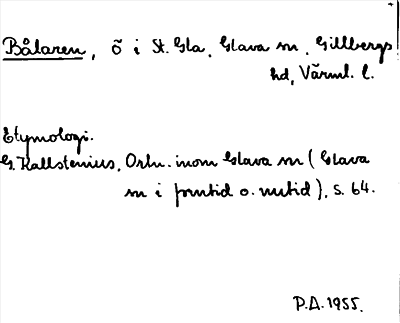 Bålaren, ö i St. Gla, Glava sn, Gillbergs
hd, Värml. l.
Etymologi.
G. Kallstenius, Ortn. inom Glava sn (Glava
sn i forntid o. nutid), s. 64.
P.A. 1955.